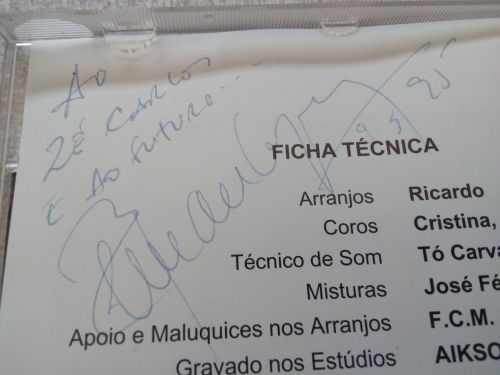 AO
ZÉ CARLOS
E AO FUTURO...
95
FICHA TÉCNICA
Arranjos Ricardo
Coros Cristina,
Técnico de Som Tó Carva
Misturas José Fé
Apoio e Maluquices nos Arranjos F.C.M.
Gravado nos Estúdios AIKSO